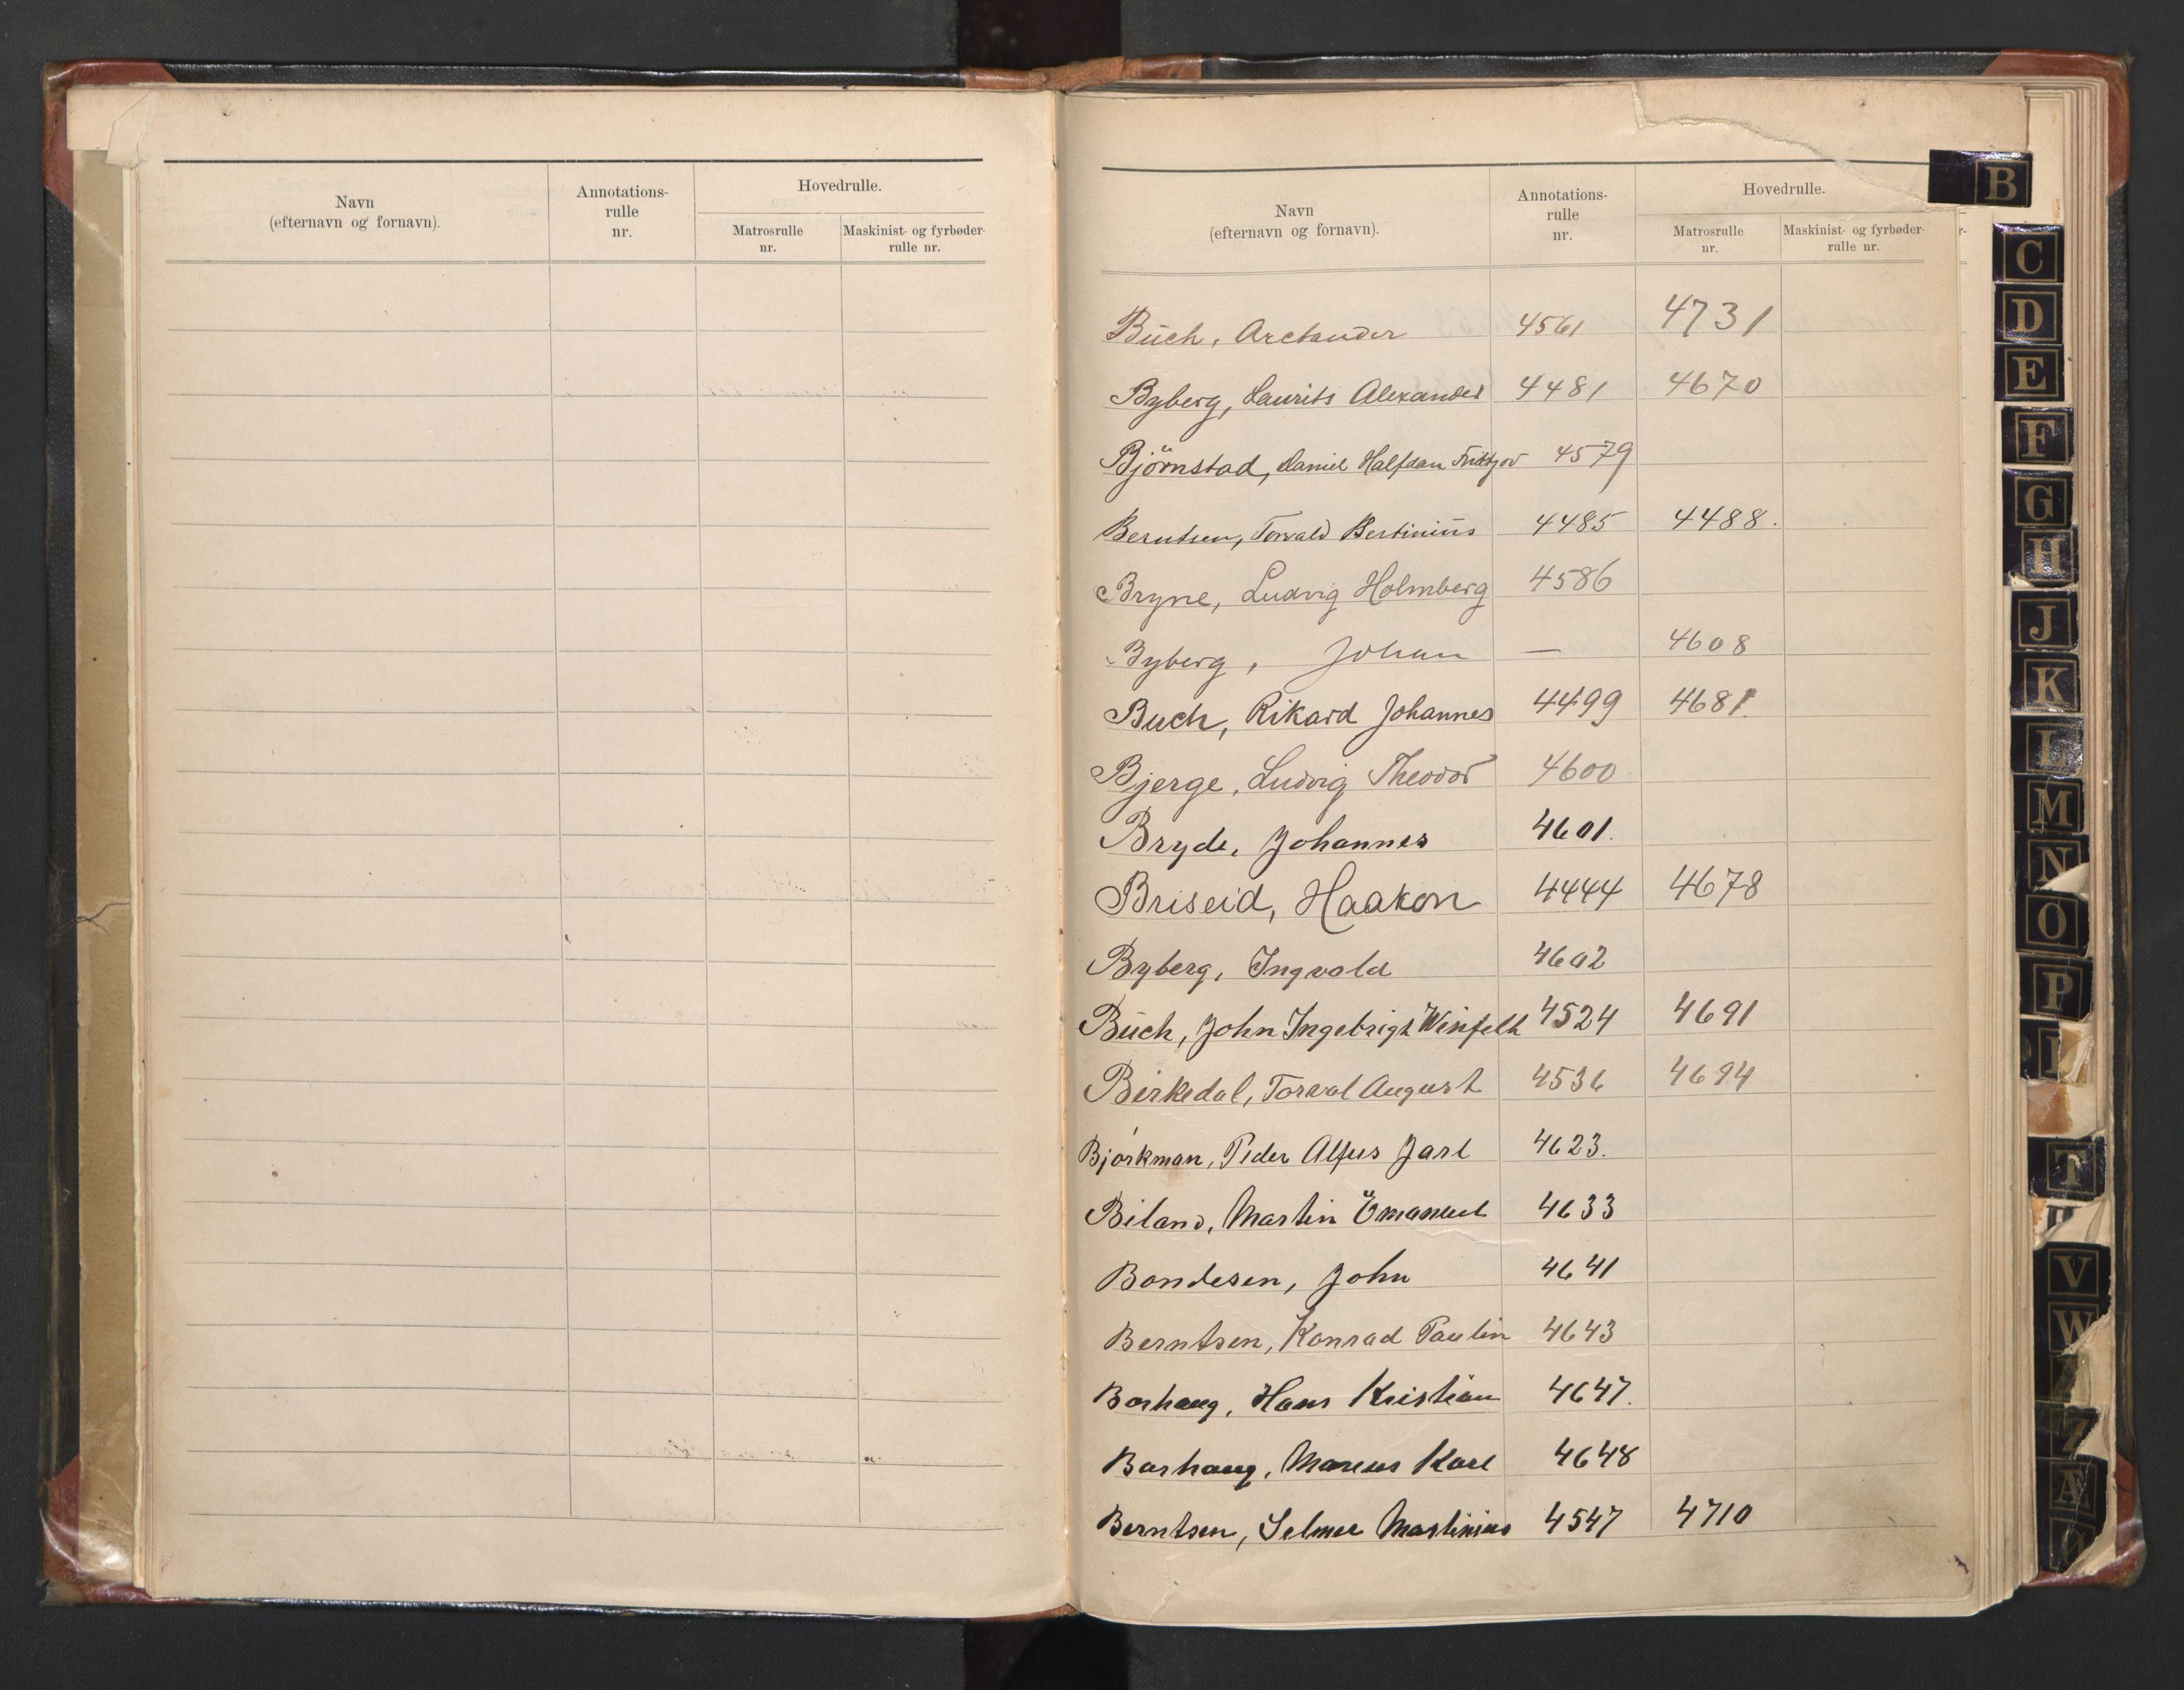 Navn
(efternavn og fornavn).
Annotations-
rulle
nr.
Hovedrulle.
Matrosrulle
nr.
Maskinist- og fyrbøder-
rulle nr.
Navn
(efternavn og fornavn).
Annotations-
rulle
nr.
Hovedrulle.
Matrosrulle
nr.
Maskinist- og fyrbøder-
rulle nr.
Buch, Arctander 4561 4731
Byberg, Laurits Alexander 4481 4670
Björnstad, Daniel Halfdan Fridtjov 4579
Berntsen, Torvald Bertinius 4485 4488.
Bryne, Ludvig Holmberg 4586
Byberg, Johan — 4608
Buch, Rikard Johannes 4499 4681.
Bjerge, Ludvig Theodor 4600
Bryde, Johannes 4601.
Briseid, Haakon 4444 4678
Byberg, Ingvald 4602
Buch, John Ingebrigt Winfelt 4524 4691
Birkedal, Torval August 4536 4694
Bjórkman, Peder Alfus Jarl 4623.
Biland, Martin Emanuel 4633
Bondesen, John 4641
Berntsen, Konrad Paulin 4643
Borhaug, Hans Kristian 4647.
Borhaug, Marcus Karl 4648
Berntsen, Selmer Martinius 4547 4710
B
C
D
E
F
G
H
J
K
L
M
N
O
P
T
V
W
Z
Æ